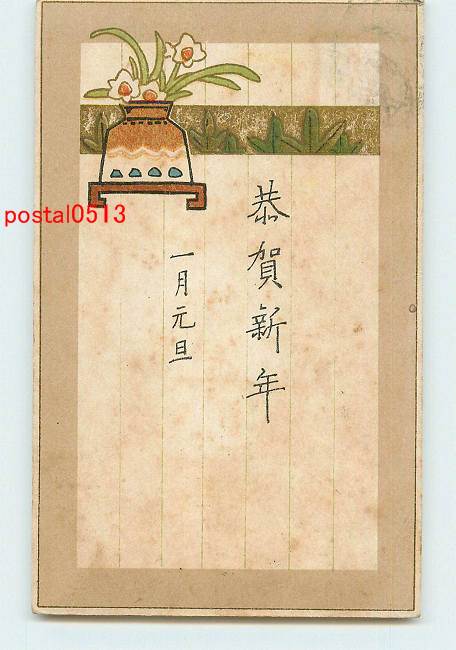 恭賀新年
一月元旦
postal0513